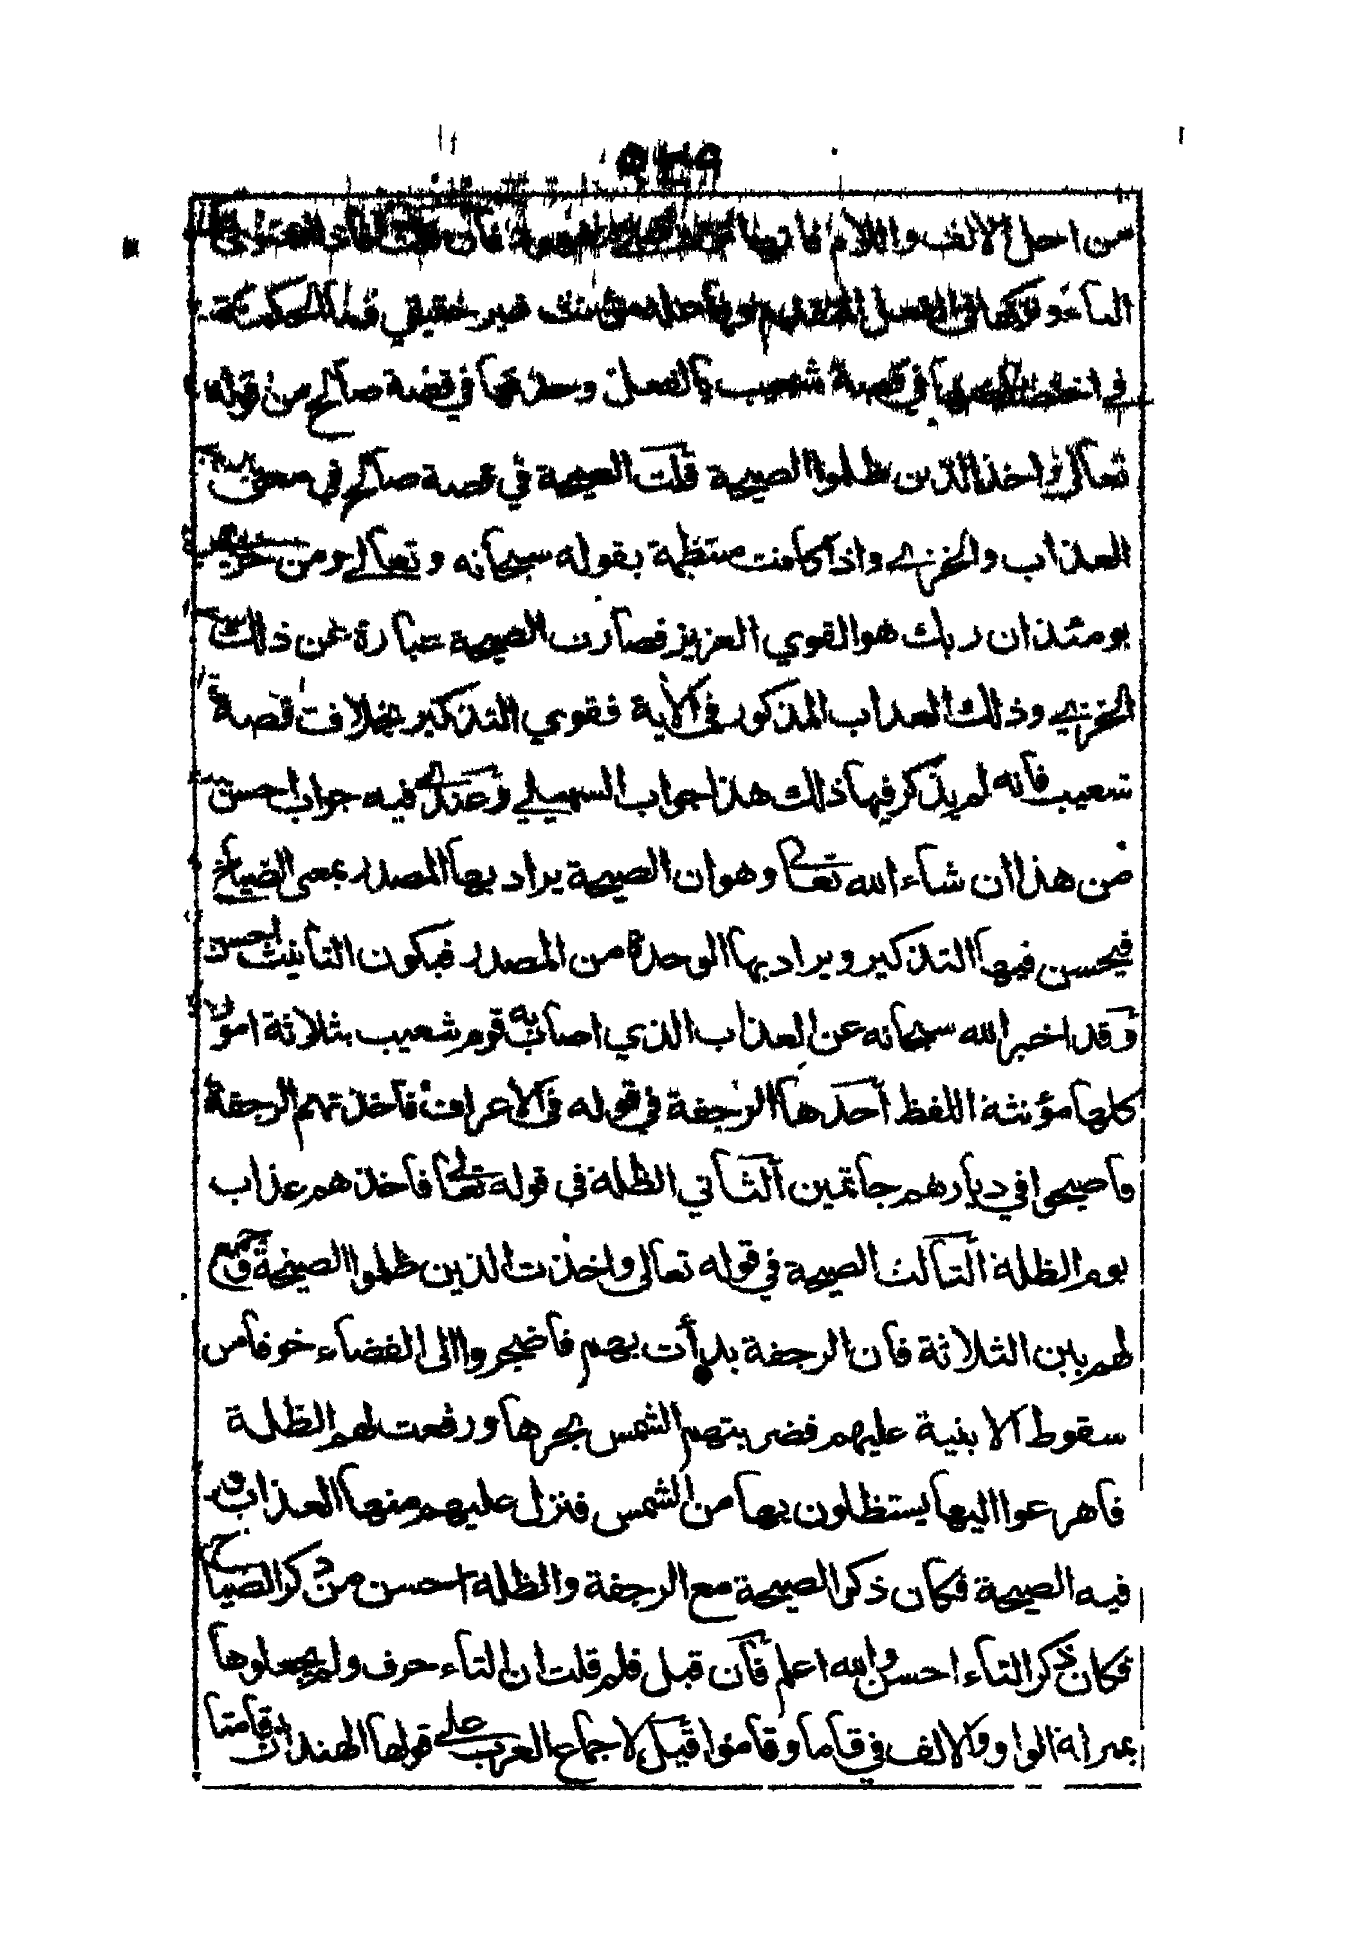 من اجل الالف واللام فانها
التاء وتركها في الفعل المتقدم وفاعله مؤنث غير حقيقي فما الحكمة
في اختصاصها في قصة شعيب بالفعل وحذفها في قصة صالح من قوله
تعالى واخذ الذين ظلموا الصيحة قلت الصيحة في قصة صالح في معنى
العذاب والخزي واذا كانت منتظمة بقوله سبحانه وتعالى ومن خزي
يومئذ ان ربك هو القوي العزيز فصارت الصيحة عبارة عن ذلك
الخزي وذلك العذاب المذكور في الاية فقوي التذكير بخلاف قصة
شعيب فانه لم يذكر فيها ذلك هذا جواب السهيلي وعندي فيه جواب احسن
من هذا ان شاء الله تعالى وهو ان الصيحة يراد بها المصدر بمعنى الصياح
فيحسن فيها التذكير ويراد بها الوحدة من المصدر فيكون التانيث احسن
وقد اخبر الله سبحانه عن العذاب الذي اصاب به قوم شعيب بثلاثة امور
كلها مؤنثة اللفظ احدها الرجفة في قوله في الاعراف فاخذتهم الرجفة
فاصبحوا في ديارهم جاثمين الثاني الظلة في قوله تعالى فاخذهم عذاب
يوم الظلة الثالث الصيحة في قوله تعالى واخذت الذين ظلموا الصيحة وجمع
لهم بين الثلاثة فان الرجفة بدأت بهم فاضجروا الى الفضاء خوفا من
سقوط الابنية عليهم فضربتهم الشمس بحرها ورفعت لهم الظلة
فاهرعوا اليها يستظلون بها من الشمس فنزل عليهم منها العذاب و
فيه الصيحة فكان ذكر الصيحة مع الرجفة والظلة احسن من ذكر الصياح
فكان ذكر التاء احسن والله اعلم فان قبل فلم قلت ان التاء حرف ولم يجعلوها
بمنزلة الواو والالف في قاما وقاموا قيل لاجماع العرب على قولها الهندان قامتا